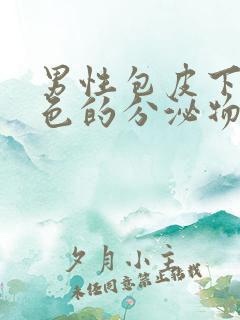 男性包皮下
色的分泌物
夕月小主
未经同意禁止转载